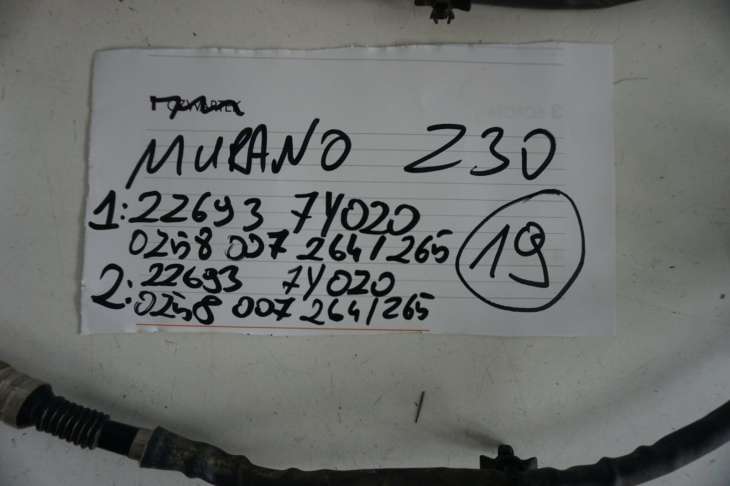 MURANO Z30
1: 22693 7Y020
0258 007 264/265
2: 22693 7Y020
0258 007 264/265
19